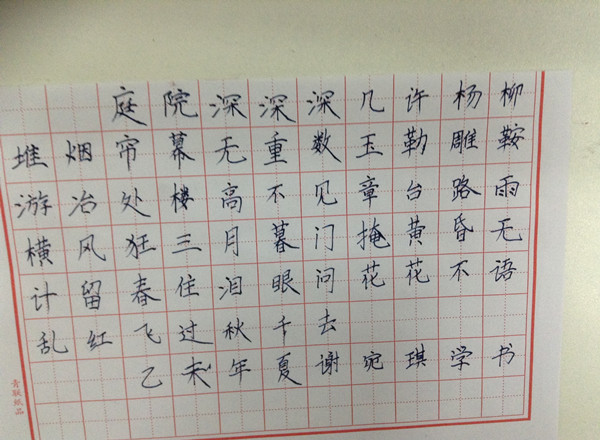 庭院深深深几许杨柳
堆烟帘幕无重数玉勒雕鞍
游冶处楼高不见章台路雨
横风狂三月暮门掩黄昏无
计留春住泪眼问花花不语
乱红飞过秋千去
乙未年夏谢宛琪学书
青联纸品